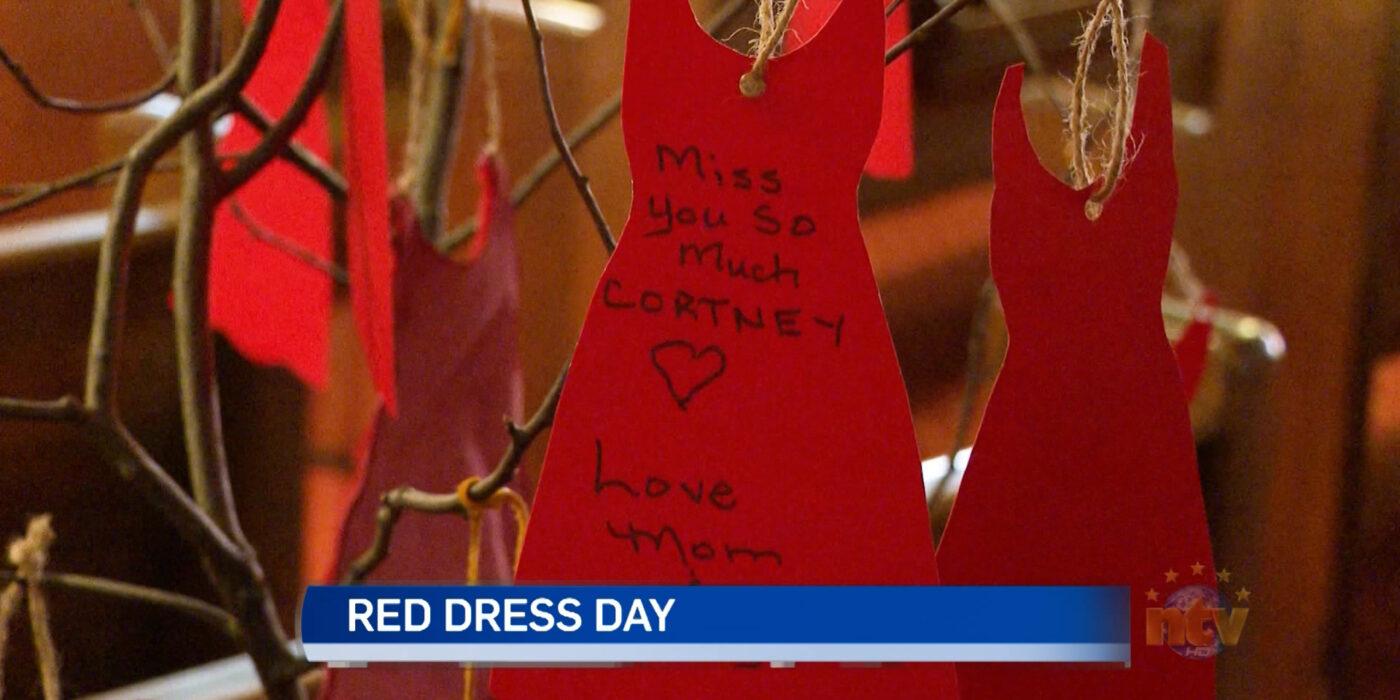 Miss
you so
Much
CORTNEY
Love
Mom
RED DRESS DAY
ntv
HD